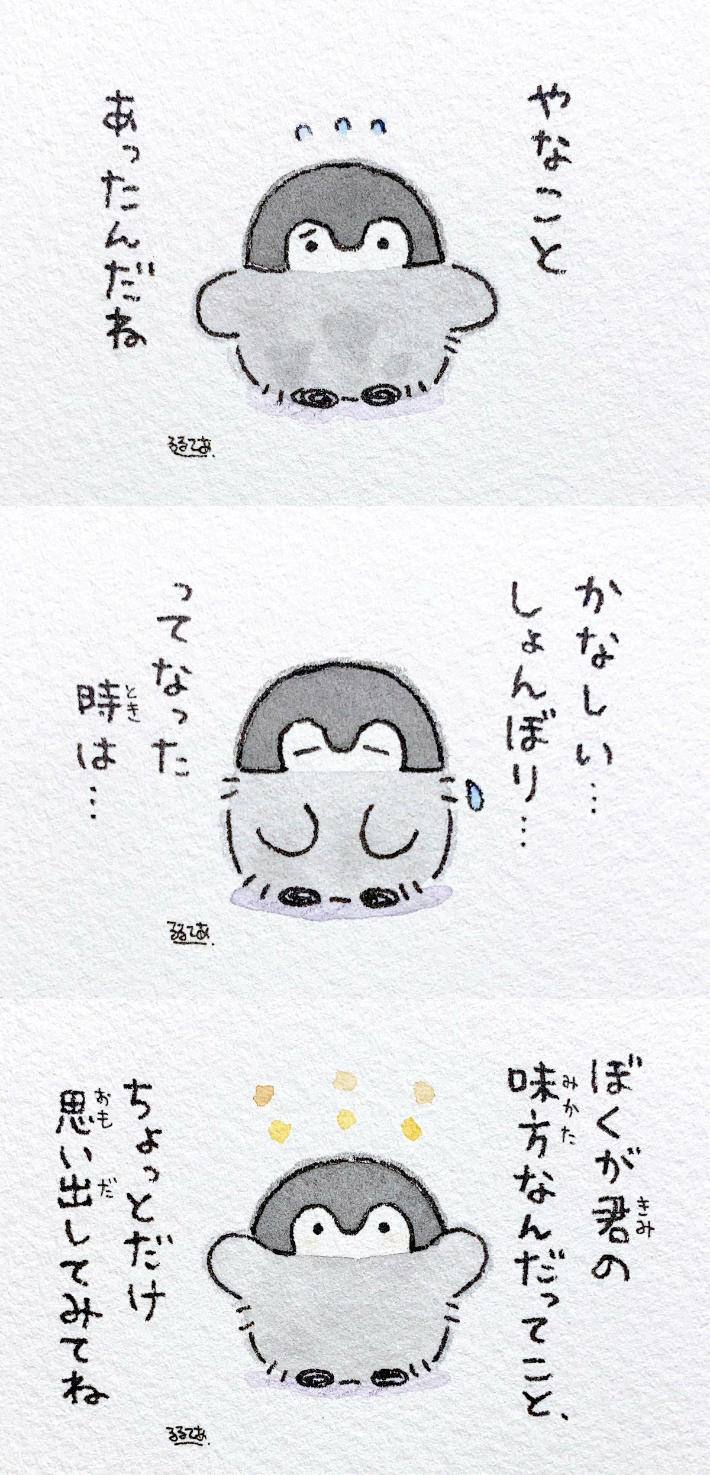 やなこと
あったんだね
るるてあ
かなしい…
しょんぼり…
ってなった
時は…
とき
るるてあ
ぼくが君の
きみ
味方なんだってこと、
みかた
ちょっとだけ
思い出してみてね
おも
だ
るるてあ